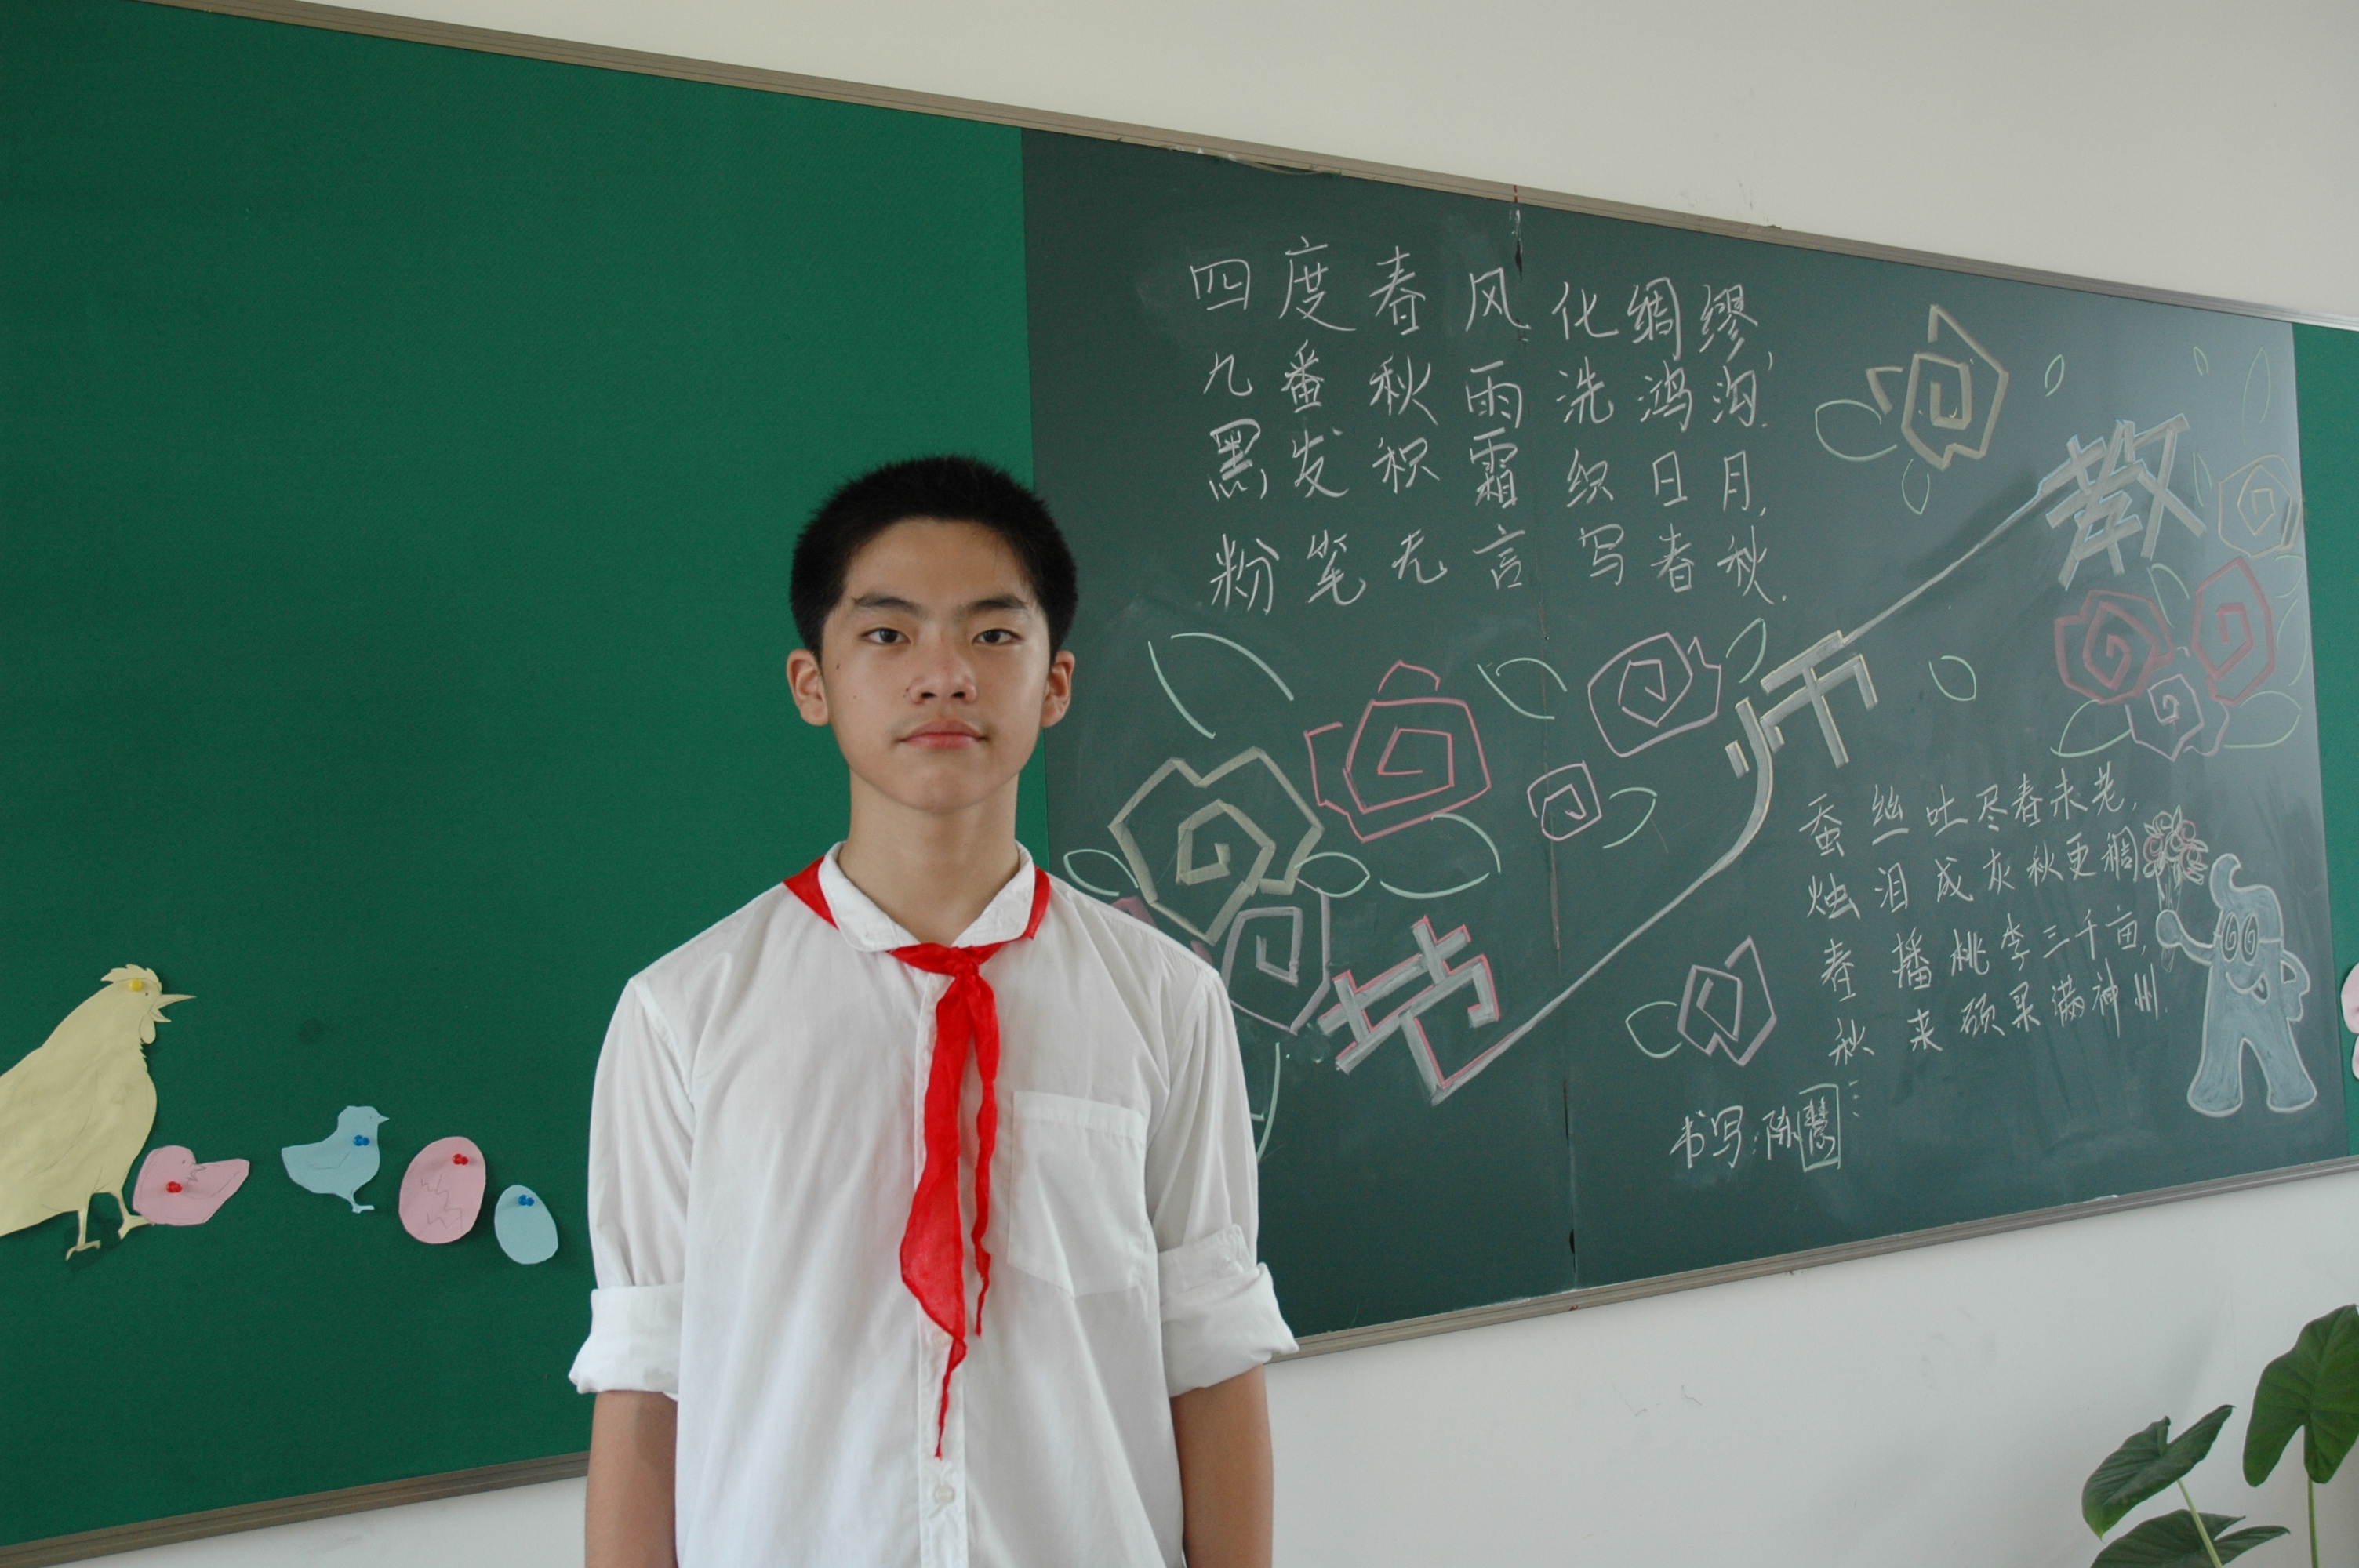 四度春风化绸缪，
九番秋雨洗鸿沟。
黑发积霜织日月，
粉笔无言写春秋。
教师节
蚕丝吐尽春未老，
烛泪成灰秋更稠
春播桃李三千亩，
秋来硕果满神州。
书写：陈慧